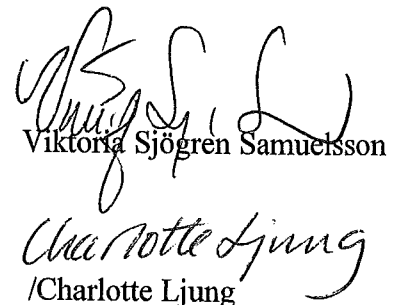 Viktoria Sjögren Samuelsson
Charlotte Ljung
/Charlotte Ljung